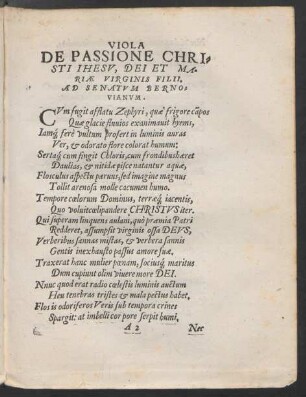 VIOLA
DE PASSIONE CHRI-
STI IHESV, DEI ET MA-
RIÆ VIRGINIS FILII,
AD SENATVM BERNO-
VIANVM.
CVm fugit afflatu Zephyri, quæ frigore cāpos
Quæ glacie fluuios exanimauit hyems,
Iamq́; ferè vultum profert in luminis auras
Ver, & odorato flore colorat humum;
Sertaq́; cum fingit Chloris, cum frondibus hæret
Daulias, & nitidæ pisce natantur aquæ,
Flosculus aspectu paruus, sed imagine magnus
Tollit arenosa molle cacumen humo.
Tempore cœlorum Dominus, terræq́; iacentis,
Quo voluit cælipandere CHRISTVS iter.
Qui superam linquens aulam, quò præmia Patri
Redderet, assumpsit virginis ossa DEVS,
Verberibus sannas mistas, & verbera sannis
Gentis inexhausto passus amore suæ,
Traxerat hanc mulier pœnam, sociusq́; maritus
Dum cupiunt olim viuere more DEI.
Nunc quod erat radio cœlestis luminis auctum
Heu tenebras tristes & mala pectus habet,
Flos is odoriferos Veris sub tempora crines
Spargit: at imbelli corpore serpit humi,
A 2 Nec